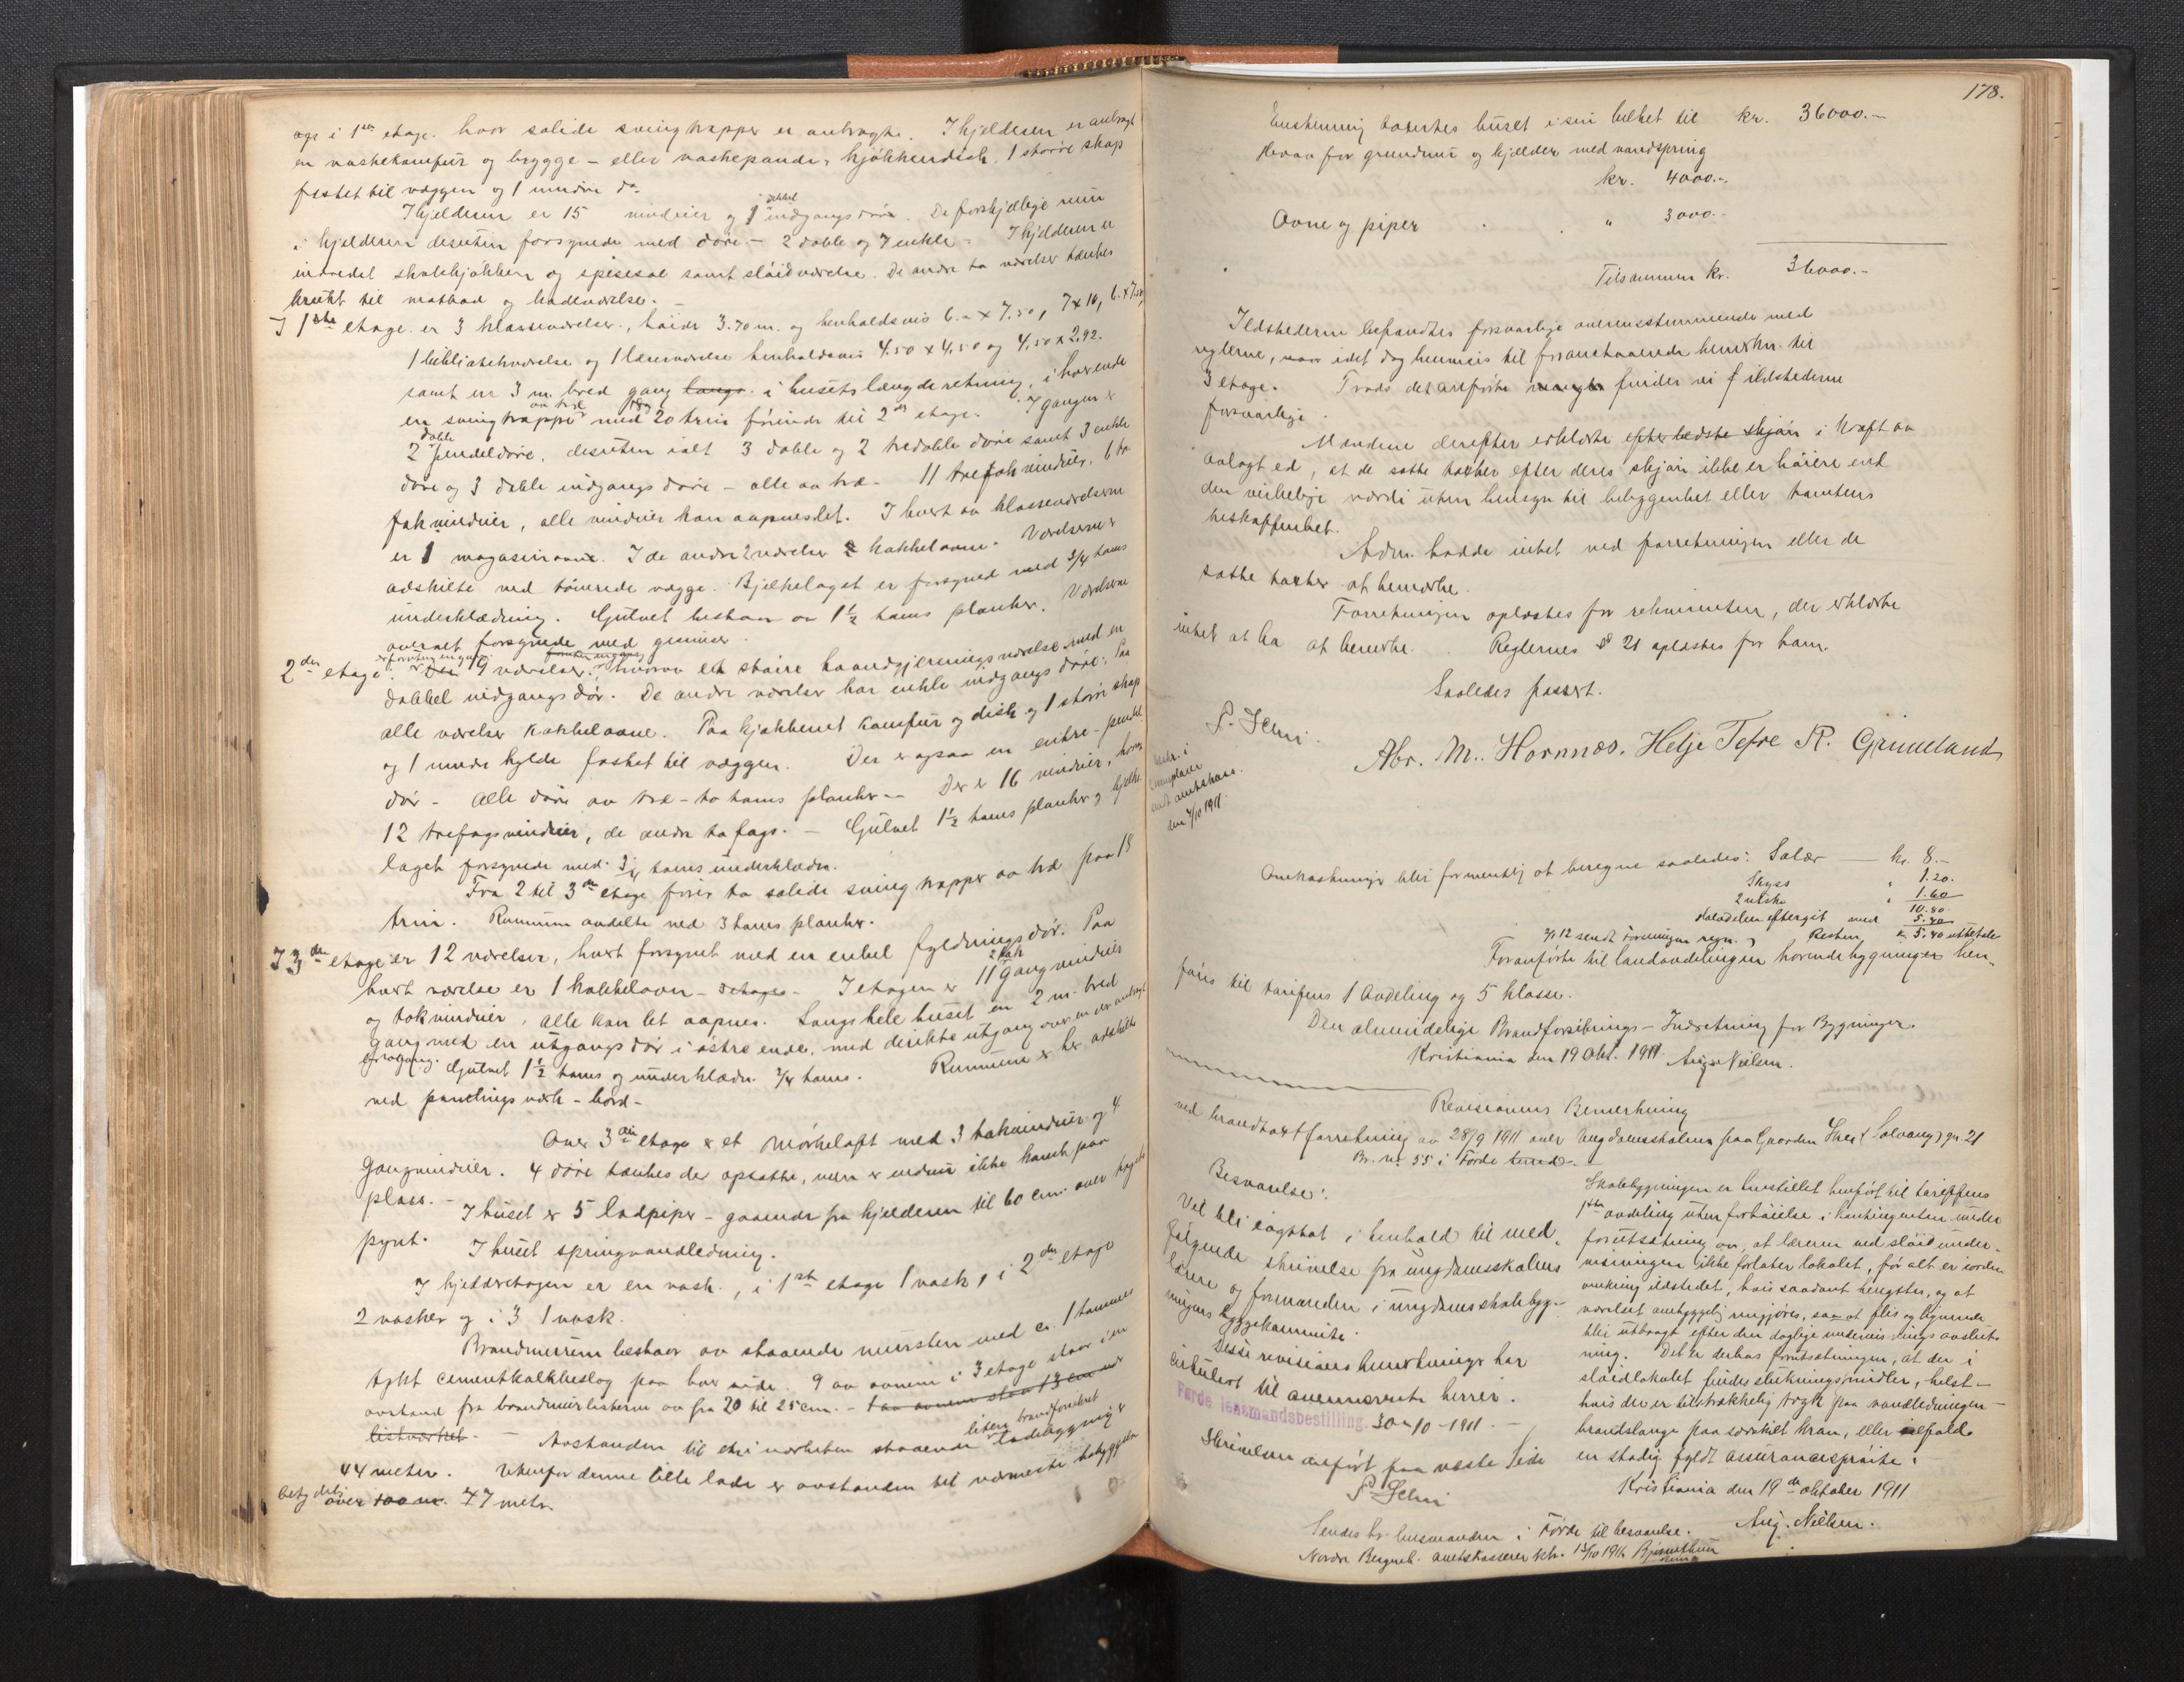 ogs i 1ste etage. hvor solide svingtrapper er anbragte. I kjelderen er anbragt
en vaskekomfur og brygge- eller vaskepande, kjøkkendisk, 1 større skap
festet til væggen og 1 mindre do.
I kjelderen er 15 vinduer og 1 dobbel indgangsdør. De forskjellige rum
i kjelderen desuten forsynede med døre - 2 doble og 7 enkle. I kjelderen er
indredet skolekjøkken og spisesal samt sløidværelse. De andre to værelser tænkes
brukt til matbod og badeværelse.
I 1ste etage er 3 klasseværelser, høide 3.70 m. og henholdsvis 6.- x 7.50, 7 x 10, 6. x 7.50,
1 bibliotekværelse og 1 læreværelse henholdsvis 4.50 x 4.50 og 4.50 x 2.92.
samt en 3 m. bred gang langs i husets længderetning, i hver ende
en svingtrappe av træ med 20 trin førende til 2den etage. I gangen er
2 doble pendeldøre, desuten ialt 3 doble og 2 tredoble døre samt 3 enkle
døre og 3 doble indgangsdøre - alle av træ. 11 trefak vinduer, 6 to
fak vinduer, alle vinduer kan aapnes let. I hvert av klasseværelserne
er 1 magasinovn. I de andre 2 værelser 2 kakkelovne. Værelserne er
adskilte ved tømrede vægge. Bjelkelaget er forsynet med 3/4 toms
underklædning. Gulvet bestaar av 1 1/2 toms planker. Værelserne
overalt forsynede med gesimser.
2den etage. er foruten en gang 9 værelser, hvorav et større haandgjerningsværelse med en
dobbel indgangsdør. De andre værelser har enkle indgangsdøre. Paa
alle værelser kakkelovne. Paa kjøkkenet komfur og disk og 1 større skap
og 1 mindre hylde fæstet til væggen. Der er ogsaa en enkle-pendel
dør - alle døre av træ - to toms planker - Der er 16 vinduer, hvorav
12 trefagsvinduer, de andre tofags. - Gulvet 1 1/2 toms planker og bjelke
laget forsynede med 3/4 toms underklædn.
Fra 2 til 3de etage fører to solide svingtrapper av træ paa 18
trin. Rummene avdelte ved 3 toms planker.
I 3de etage er 12 værelser, hvert forsynet med en enkel fyldningsdør. Paa
hvert værelse er 1 kakkelovn - I etagen er 11 2 fak gangvinduer
og takvinduer, alle kan let aapnes. Langs hele huset en 2 m. bred
gang med en utgangsdør i østre ende, med direkte utgang over en der anbragt
Gulvet 1 1/2 toms og underklædn. 3/4 toms. Rummene er her adskilte
ved panelingsverk - bord -
Over 3die etage er et mørkeloft med 3 takvinduer og 4
gangvinduer. 4 døre tænkes der opsatte, men er endnu ikke komt paa
plass. - I huset er 5 lodpiper - gaaende fra kjelderen til 60 cm. over tagets
pynt. I huset springvandledning.
I kjelderetagen er en vask, i 1ste etage 1 vask, i 2den etage
2 vasker og i 3 1 vask.
Brandmuren bestaar av staaende mursten med ca. 1 tommes
tykt cementkalkbeslag paa hver side. 9 av ovnene i 3 etage staar i en
avstand fra brandmurlisterne av fra 20 til 25 cm. - to av ovnene staa 13 cm
listverket - Avstanden til en i nærheten staaende liten brandfarlig ladebygning er
44 meter. Utenfor denne lille lade er avstanden til nærmeste bebyggelse
betydelig over 100 m. 47 meter.
178.
Enstemmig taxertes huset i sin helhet til kr. 36000.-
Herav for grundmur og kjælder med vandspring
kr. 4000.-
Ovne og piper " 3000.-
Tilsammen kr. 36000.-
Ildstederne befandtes forsvarlige overensstemmende med
reglerne, idet dog henvises til foranstaaende bemerkn. til
3 etage. Trods det anførte mangler finder vi ildstederne
forsvarlige.
Mændene derefter erklærte efter bedste skjøn i kraft av
avlagt ed, at de satte takster efter deres skjøn ikke er høiere end
den virkelige værdi uten hensyn til beliggenhet eller tomtens
beskaffenhet.
Adm. hadde intet ved forretningen eller de
satte takster at bemerke.
Forretningen oplæstes for rekvirenten, der erklærte
intet at ha at bemerke. Reglernes § 21 oplæstes for ham.
Saaledes passert.
Abr. M. Hornnes. Helje Tefre R. Grimeland
Utskr. i
2 exemplarer
sendt amtskass.
den 4/10 1911.
Omkostninger blir formentlig at beregne saaledes: Salær — kr. 8.-
Skyss " 1.20.
2 utskr. " 1.60
10.80
Halvdelen eftergit med 5.40
Resten kr. 5.40 utbetales
Foranførte til landavdelingen hørende bygninger hen-
føres til tarifens 1 avdeling og 5 klasse.
Den almindelige Brandforsikrings-Indretning for Bygninger.
Kristiania den 19 Okt. 1911. Aug. Nielsen.
Revisionens Bemerkning
ved brandtakstforretning av 28/9 1911 over Ungdomsskolen paa Gaarden (Solvang) gn. 21
Br. no 55 i Førde
Besvarelse:
Vil bli iagttat i henhold til med-
følgende skrivelse fra ungdomsskolens
lærer og formanden i ungdomsskolebyg-
ningens byggekomite.
Disse revisionsbemerkninger har
cirkulert til ovennævnte herrer.
Førde lensmandsbestilling. 30-10-1911. -
Skrivelsen anført paa næste side
Skolebygningen er indstillet henført til tariffens
1ste avdeling uten forhøielse i kontingenten under
forutsætning av, at læreren ved sløidunder-
visningen ikke forlater lokalet, før alt er iorden
omkring ildstedet, hvis saadant benyttes, og at
værelset omhyggelig rengjøres, samt at flis og lignende
blir utbragt efter den daglige undervisnings avslut-
ning. Det er derhos forutsætningen, at der i
sløidlokalet findes slukningsmidler, helst -
hvis der er tilstrækkelig tryk paa vandledningen -
brandslange paa særskilt kran, eller ifald
en stadig fyldt assurancesprøite.
Kristiania den 19de oktober 1911
Aug. Nielsen.
Sendes hr. lensmanden i Førde til besvarelse.
Nordre Bergenh. amtskasserer ktr. 1911.